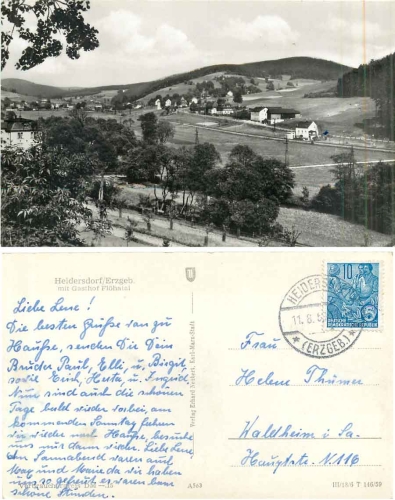 Heidersdorf/Erzgeb.
mit Gasthof Flöhatal
Liebe Lene!
Die besten Grüße von zu
Hauſe, senden Dir Dein
Brüder Paul, Elli, u. Birgit,
sowie Erich, Herta, u. Ingrid.
Nun sind auch die schönen
Tage bald wieder vorbei, am
kommenden Sonntag fahren
wir wieder nach Hauſe, besuche
uns mal dann wieder. Liebe Lene,
Am Sonnabend waren auf
wir haben
schöne Stunden.
Verlag Erhard Neubert, Karl-Marx-Stadt
A 749
HEIDERSDORF
11. 8. 5
(ERZGEB.)
10
DEUTSCHE
DEMOKRATISCHE REPUBLIK
5
Frau
Helene Thümer
Waldheim i. Sa.
Hauptstr. N. 116